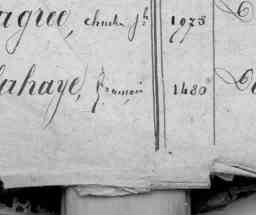 agree, Charles Jh 1975
lahaye, françois 1480